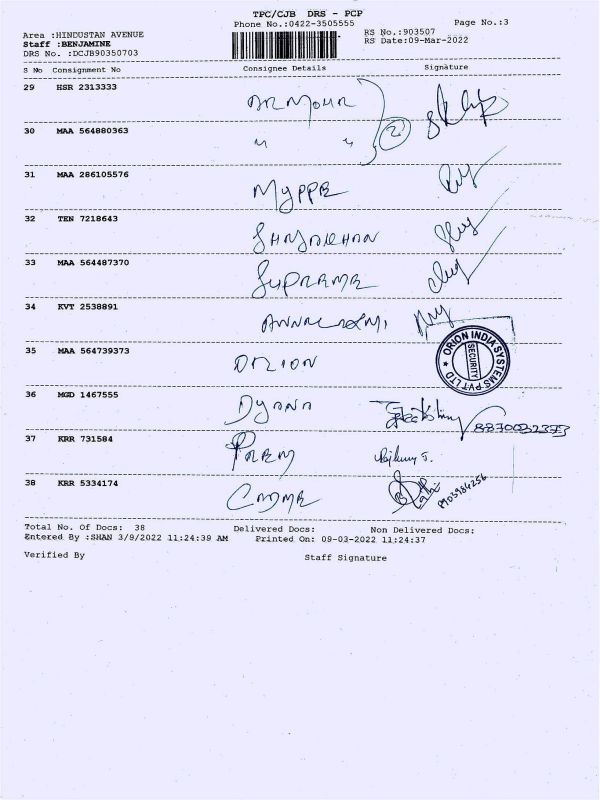 TPC/CJB DRS - PCP
Phone No.:0422-3505555
Page No.:3
Area :HINDUSTAN AVENUE
RS No.:903507
Staff :BENJAMINE
RS Date:09-Mar-2022
DRS No. :DCJB90350703
S No Consignment No Consignee Details Signature
29 HSR 2313333 ARMOUR
30 MAA 564880363 " " 2
31 MAA 286105576 MYPPE
32 TEN 7218643
33 MAA 564487370 SUPREME
34 KVT 2538891
35 MAA 564739373 ORION
ORION INDIA SYSTEMS PVT LTD
SECURITY
36 MGD 1467555 DYANA 8870032373
37 KRR 731584 PREM
38 KRR 5334174
Total No. Of Docs: 38 Delivered Docs: Non Delivered Docs:
Entered By :SHAN 3/9/2022 11:24:39 AM Printed On: 09-03-2022 11:24:37
Verified By Staff Signature